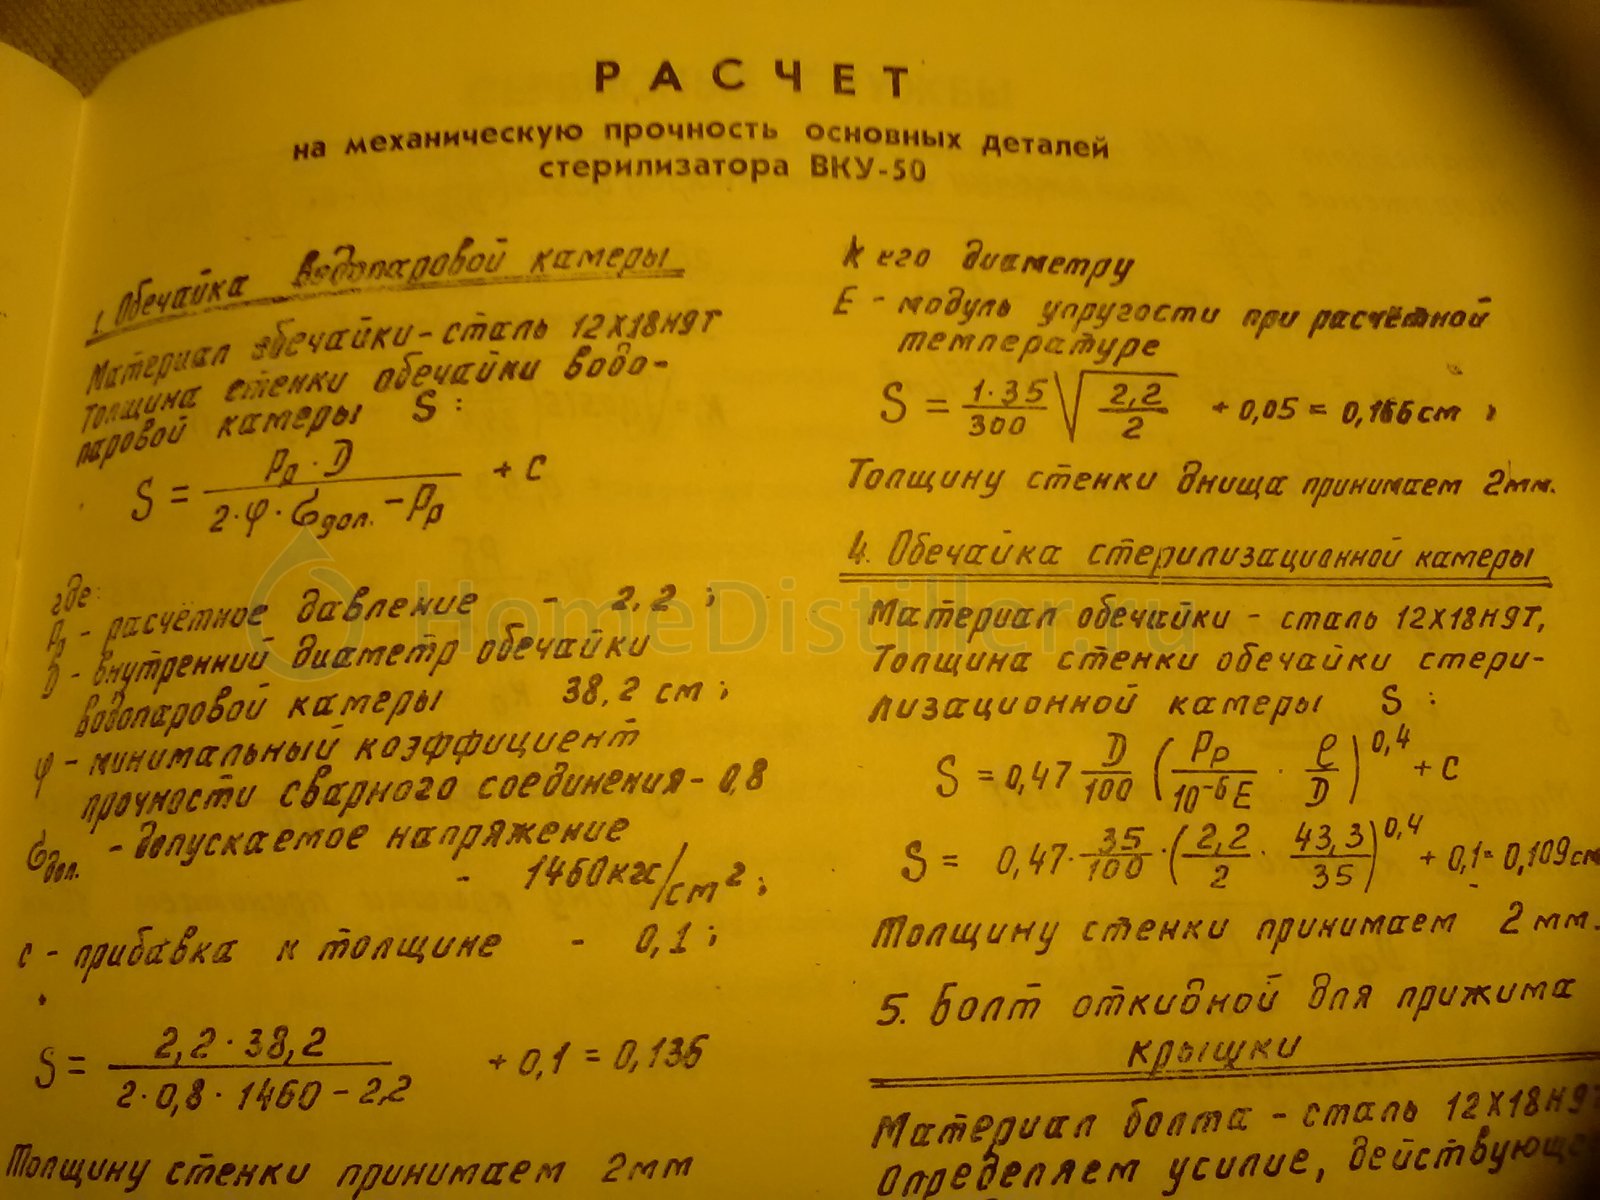 РАСЧЕТ
на механическую прочность основных деталей
стерилизатора ВКУ-50
1. Обечайка водопаровой камеры
Материал обечайки - сталь 12Х18Н9Т
Толщина стенки обечайки водо-
паровой камеры S:
S = Pр · D / (2 · φ · σдоп. - Pр) + C
где:
Pр - расчётное давление - 2,2 ;
D - внутренний диаметр обечайки
водопаровой камеры 38,2 см ;
φ - минимальный коэффициент
прочности сварного соединения - 0,8
σдоп. - допускаемое напряжение
- 1460кг/см² ;
с - прибавка к толщине - 0,1 ;
S = 2,2 · 38,2 / (2 · 0,8 · 1460 - 2,2) + 0,1 = 0,136
Толщину стенки принимаем 2мм
к его диаметру
E - модуль упругости при расчётной
температуре
S = 1·35/300 √(2,2/2) + 0,05 = 0,166 см ;
Толщину стенки днища принимаем 2мм.
4. Обечайка стерилизационной камеры
Материал обечайки - сталь 12Х18Н9Т,
Толщина стенки обечайки стери-
лизационной камеры S :
S = 0,47 D/100 (Pр/10⁻⁶E · ℓ/D)^0,4 + C
S = 0,47 · 35/100 · (2,2/2 · 43,3/35)^0,4 + 0,1 = 0,109 см
Толщину стенки принимаем 2 мм.
5. Болт откидной для прижима
крышки
Материал болта - сталь 12Х18Н9Т
Определяем усилие, действующе
HomeDistiller.ru